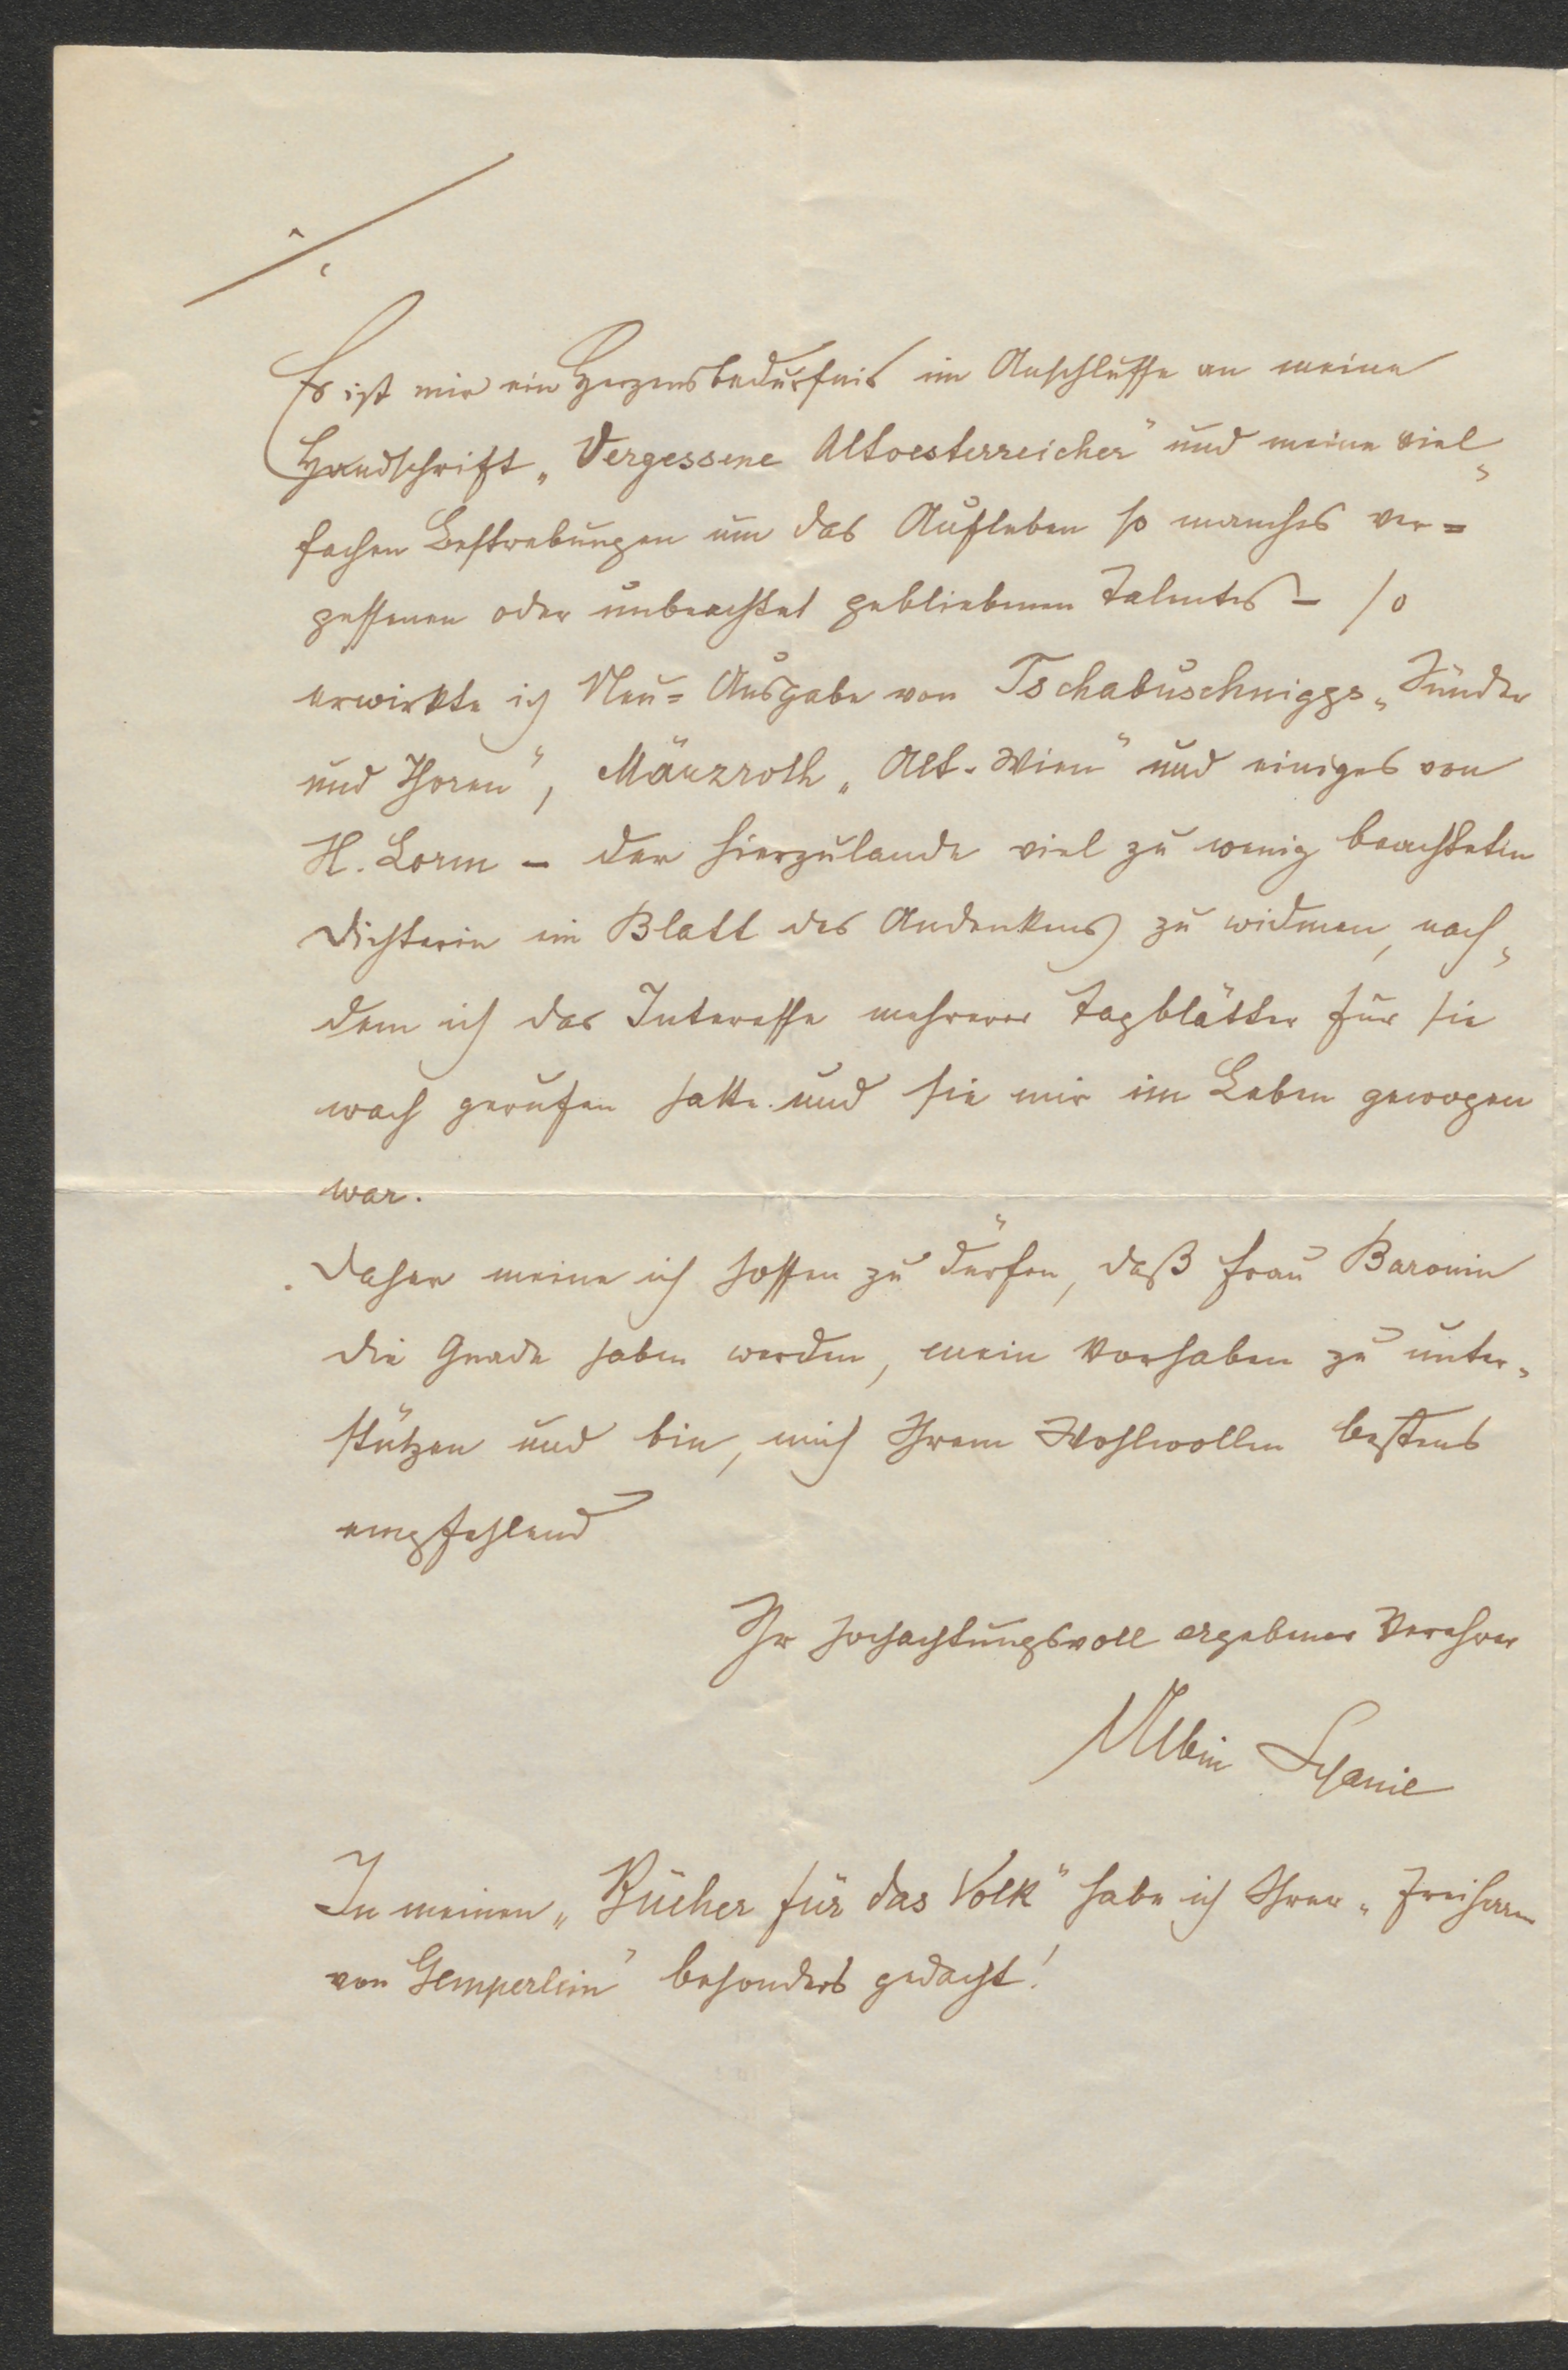 ./.
Es ist mir ein Herzensbedürfnis im Anschlusse an meine
Handschrift „Vergessene Altoesterreicher“ und meine viel-
fachen Bestrebungen um das Aufleben so manches ver=
gessenen oder unbeachtet gebliebenen Talentes – so
erwirkte ich Neu=Ausgabe von Tschabuschniggs „Sünder
und Thoren“, Märzroth „Alt-Wien“ und einiges von
H. Lorm – der hierzulande viel zu wenig beachteten
Dichterin ein Blatt des Andenkens zu widmen, nach-
dem ich das Interesse mehrerer Tagblätter für sie
wach gerufen hatte und sie mir im Leben gewogen
war.
Daher meine ich hoffen zu dürfen, daß Frau Baronin
die Gnade haben werden, mein Vorhaben zu unter-
stützen und bin, mich Ihrem Wohlwollen bestens
empfehlend
Ihr hochachtungsvoll ergebener Verehrer
Albin
In meinen „Bücher für das Volk“ habe ich Ihrer „Freiherrn
von Gemperlein“ besonders gedacht!